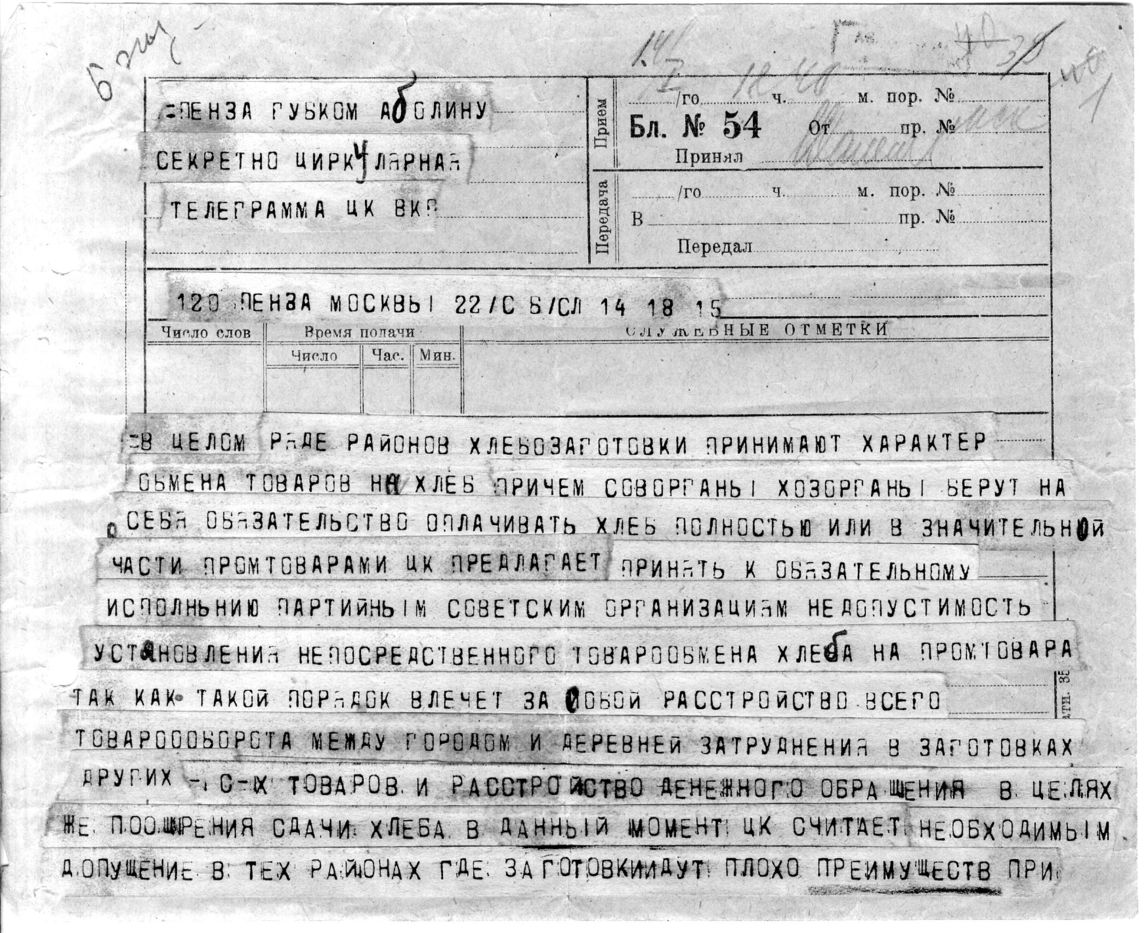 6 экз
=ПЕНЗА ГУБКОМ АБОЛИНУ
СЕКРЕТНО ЦИРКУЛЯРНАЯ
ТЕЛЕГРАММА ЦК ВКП
Прием
/го ч. м. пор. №
Бл. № 54 От пр. №
Принял
Передача
/го ч. м. пор. №
В пр. №
Передал
120 ПЕНЗА МОСКВЫ 22/С Б/СЛ 14 18 15
Число слов Время подачи СЛУЖЕБНЫЕ ОТМЕТКИ
Число Час. Мин.
=В ЦЕЛОМ РЯДЕ РАЙОНОВ ХЛЕБОЗАГОТОВКИ ПРИНИМАЮТ ХАРАКТЕР
ОБМЕНА ТОВАРОВ НА ХЛЕБ ПРИЧЕМ СОВОРГАНЫ ХОЗОРГАНЫ БЕРУТ НА
СЕБЯ ОБЯЗАТЕЛЬСТВО ОПЛАЧИВАТЬ ХЛЕБ ПОЛНОСТЬЮ ИЛИ В ЗНАЧИТЕЛЬНОЙ
ЧАСТИ ПРОМТОВАРАМИ ЦК ПРЕДЛАГАЕТ ПРИНЯТЬ К ОБЯЗАТЕЛЬНОМУ
ИСПОЛНЬНИЮ ПАРТИЙНЫМ СОВЕТСКИМ ОРГАНИЗАЦИЯМ НЕДОПУСТИМОСТЬ
УСТАНОВЛЕНИЯ НЕПОСРЕДСТВЕННОГО ТОВАРООБМЕНА ХЛЕБА НА ПРОМТОВАРА
ТАК КАК ТАКОЙ ПОРЯДОК ВЛЕЧЕТ ЗА СОБОЙ РАССТРОЙСТВО ВСЕГО
ТОВАРОООБОРОТА МЕЖДУ ГОРОДОМ И ДЕРЕВНЕЙ ЗАТРУДНЕНИЯ В ЗАГОТОВКАХ
ДРУГИХ -. С-Х ТОВАРОВ И РАССТРОЙСТВО ДЕНЕЖНОГО ОБРАЩЕНИЯ В ЦЕЛЯХ
ЖЕ ПООЩРЕНИЯ СДАЧИ ХЛЕБА В ДАННЫЙ МОМЕНТ ЦК СЧИТАЕТ НЕОБХОДИМЫМ
ДОПУЩЕНИЕ В ТЕХ РАЙОНАХ ГДЕ ЗАГОТОВКИИДУТ ПЛОХО ПРЕИМУЩЕСТВ ПРИ